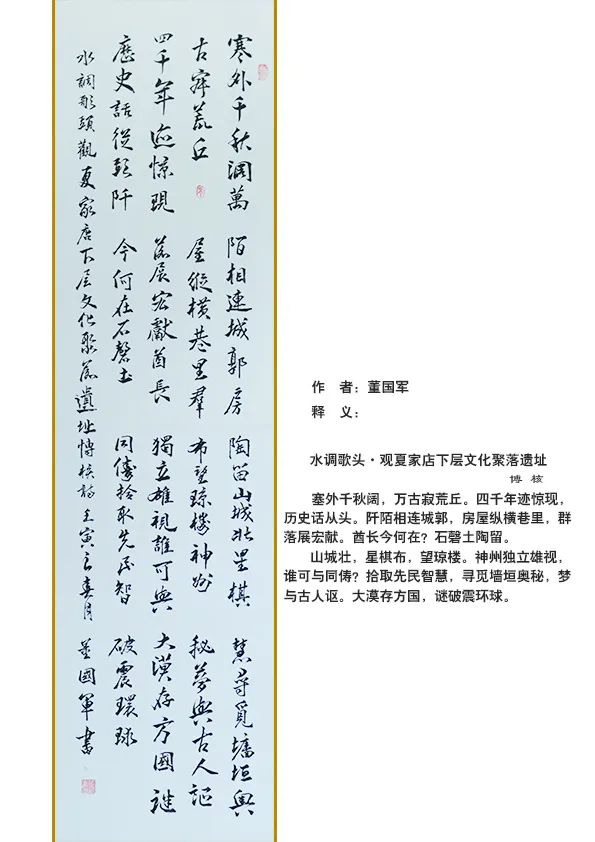 塞外千秋濶萬
古寂荒丘
四千年迹惊現
歷史話從頭阡
陌相連城郭房
屋縱橫巷里群
落展宏獻酋長
今何在石磬土
陶留山城壮星棋
布望琼樓神州
獨立雄視誰可與
同儔拾取先民智
慧尋覓墻垣奥
秘夢與古人謳
大漠存方國謎
破震環球
水調歌頭觀夏家店下层文化聚落遺址傅核詩壬寅之春月董國軍書
作 者：董国军
释 义：
水调歌头·观夏家店下层文化聚落遗址
傅 核
塞外千秋阔，万古寂荒丘。四千年迹惊现，
历史话从头。阡陌相连城郭，房屋纵横巷里，群
落展宏献。酋长今何在？石磬土陶留。
山城壮，星棋布，望琼楼。神州独立雄视，
谁可与同俦？拾取先民智慧，寻觅墙垣奥秘，梦
与古人讴。大漠存方国，谜破震环球。